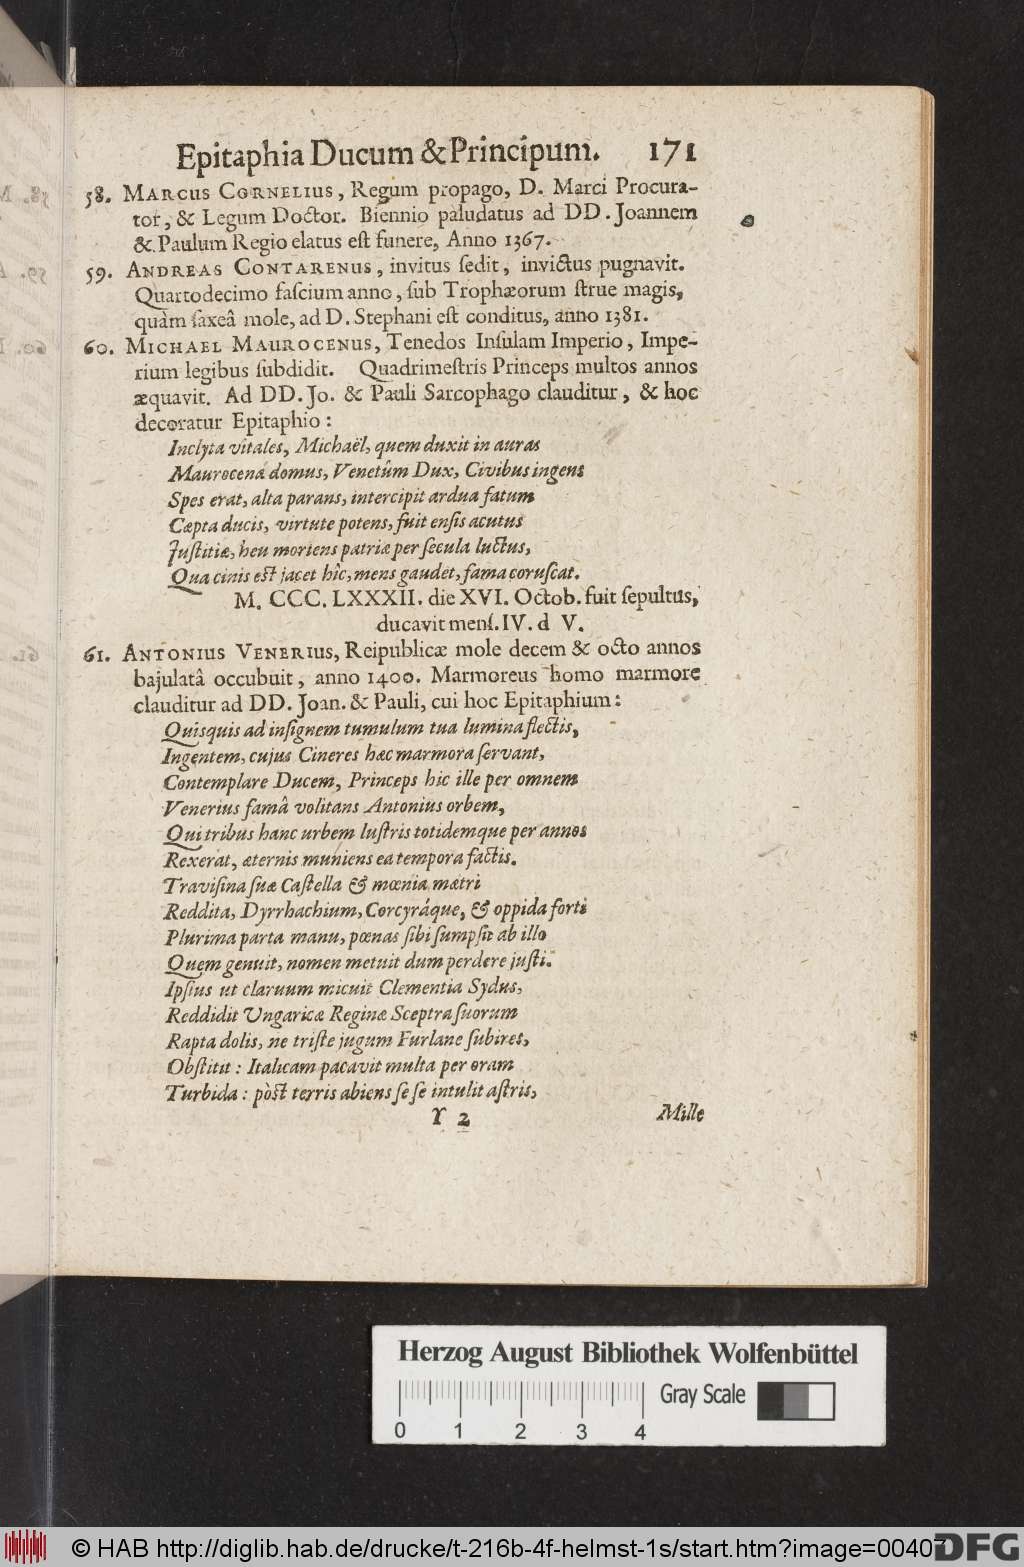 Epitaphia Ducum & Principum. 171
58. MARCUS CORNELIUS, Regum propago, D. Marci Procura-
tor, & Legum Doctor. Biennio paludatus ad DD. Joannem
& Paulum Regio elatus eſt funere, Anno 1367.
59. ANDREAS CONTARENUS, invitus ſedit, invictus pugnavit.
Quartodecimo faſcium anno, ſub Trophæorum ſtrue magis,
quàm ſaxeâ mole, ad D. Stephani eſt conditus, anno 1381.
60. MICHAEL MAUROCENUS, Tenedos Inſulam Imperio, Impe-
rium legibus ſubdidit. Quadrimeſtris Princeps multos annos
æquavit. Ad DD. Jo. & Pauli Sarcophago clauditur, & hoc
decoratur Epitaphio:
Inclyta vitales, Michaël, quem duxit in auras
Maurocena domus, Venetûm Dux, Civibus ingens
Spes erat, alta parans, intercipit ardua fatum
Cæpta ducis, virtute potens, fuit enſis acutus
Juſtitiæ, heu moriens patriæ per ſecula luctus,
Qua cinis eſt jacet hîc, mens gaudet, fama coruſcat.
M. CCC. LXXXII. die XVI. Octob. fuit ſepultus,
ducavit menſ. IV. d V.
61. ANTONIUS VENERIUS, Reipublicæ mole decem & octo annos
bajulatâ occubuit, anno 1400. Marmoreus homo marmore
clauditur ad DD. Joan. & Pauli, cui hoc Epitaphium:
Quisquis ad inſignem tumulum tua lumina flectis,
Ingentem, cujus Cineres hæc marmora ſervant,
Contemplare Ducem, Princeps hic ille per omnem
Venerius famâ volitans Antonius orbem,
Qui tribus hanc urbem luſtris totidemque per annos
Rexerat, æternis muniens ea tempora factis.
Traviſina ſuæ Caſtella & mœnia matri
Reddita, Dyrrhachium, Corcyráque, & oppida forti
Plurima parta manu, pœnas ſibi ſumpſit ab illo
Quem genuit, nomen metuit dum perdere juſti.
Ipſius ut claruum micuit Clementia Sydus,
Reddidit Ungaricæ Reginæ Sceptra ſuorum
Rapta dolis, ne triſte jugum Furlane ſubires,
Obſtitit: Italicam pacavit multa per oram
Turbida: pòſt terris abiens ſe ſe intulit aſtris,
Y 2 Mille
Herzog August Bibliothek Wolfenbüttel
Gray Scale
0 1 2 3 4
© HAB http://diglib.hab.de/drucke/t-216b-4f-helmst-1s/start.htm?image=00407
DFG